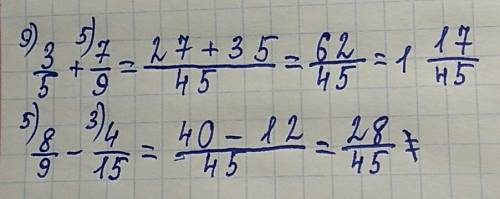 9) 3/5 + 5) 7/9 = (27 + 35)/45 = 62/45 = 1 17/45
5) 8/9 - 3) 4/15 = (40 - 12)/45 = 28/45